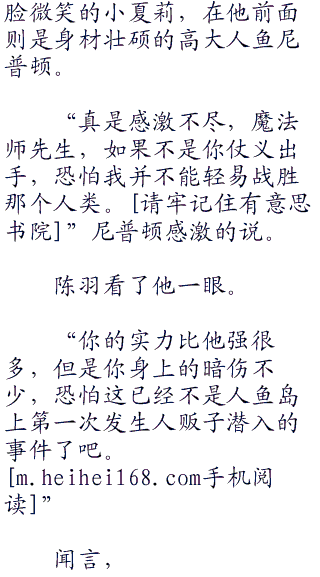 脸微笑的小夏莉，在他前面
则是身材壮硕的高大人鱼尼
普顿。
“真是感激不尽，魔法
师先生，如果不是你仗义出
手，恐怕我并不能轻易战胜
那个人类。[请牢记住有意思
书院]”尼普顿感激的说。
陈羽看了他一眼。
“你的实力比他强很
多，但是你身上的暗伤不
少，恐怕这已经不是人鱼岛
上第一次发生人贩子潜入的
事件了吧。
[m.heihei168.com手机阅
读]”
闻言，